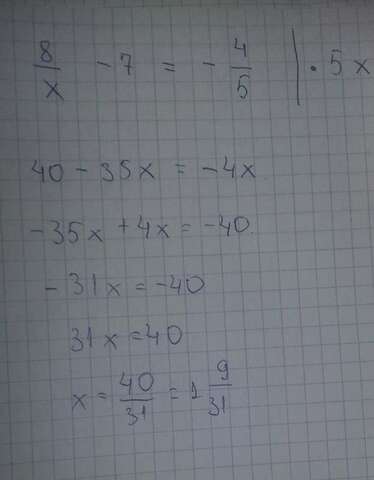 8/x - 7 = - 4/5 | · 5x
40 - 35x = -4x
-35x + 4x = -40.
-31x = -40
31x = 40
x = 40/31 = 1 9/31